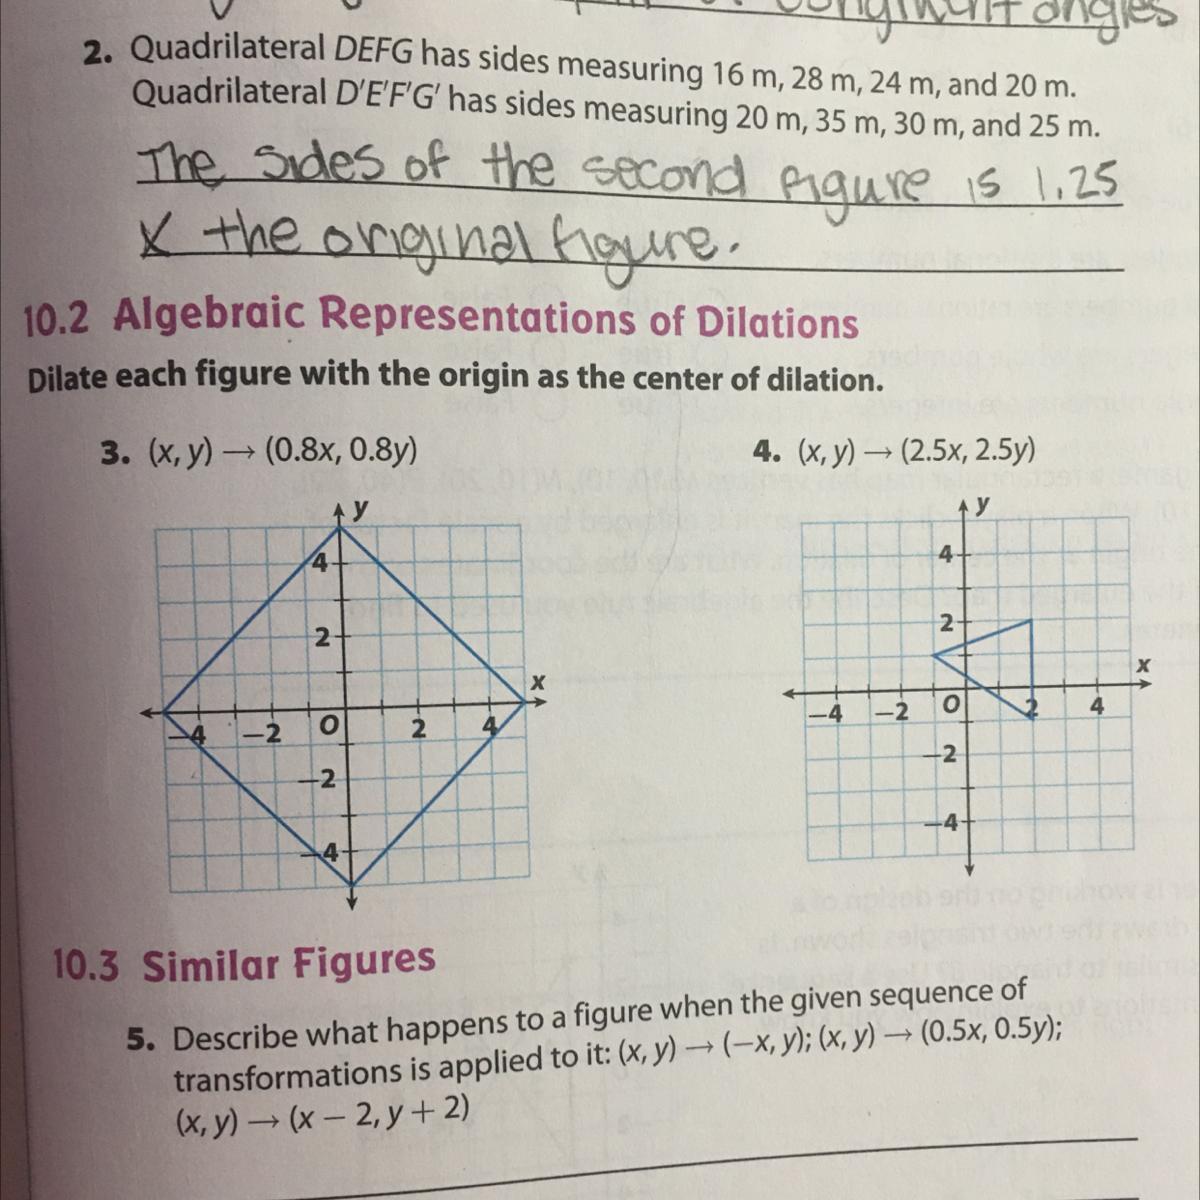 congruent angles
2. Quadrilateral DEFG has sides measuring 16 m, 28 m, 24 m, and 20 m.
Quadrilateral D'E'F'G' has sides measuring 20 m, 35 m, 30 m, and 25 m.
The sides of the second figure is 1.25
x the original figure.
10.2 Algebraic Representations of Dilations
Dilate each figure with the origin as the center of dilation.
3. (x, y) → (0.8x, 0.8y)
y
4
2
x
-4 -2 O 2 4
-2
-4
4. (x, y) → (2.5x, 2.5y)
y
4
2
x
-4 -2 O 2 4
-2
-4
10.3 Similar Figures
5. Describe what happens to a figure when the given sequence of
transformations is applied to it: (x, y) → (−x, y); (x, y) → (0.5x, 0.5y);
(x, y) → (x − 2, y + 2)